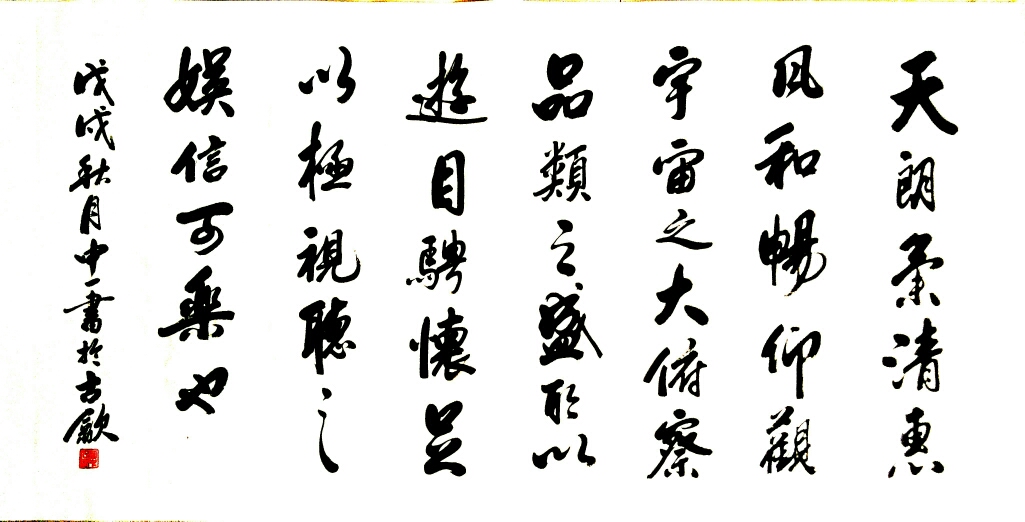 天朗氣清惠
風和暢仰觀
宇宙之大俯察
品類之盛所以
遊目騁懷足
以極視聽之
娛信可樂也
戊戌秋月中一書於古歙